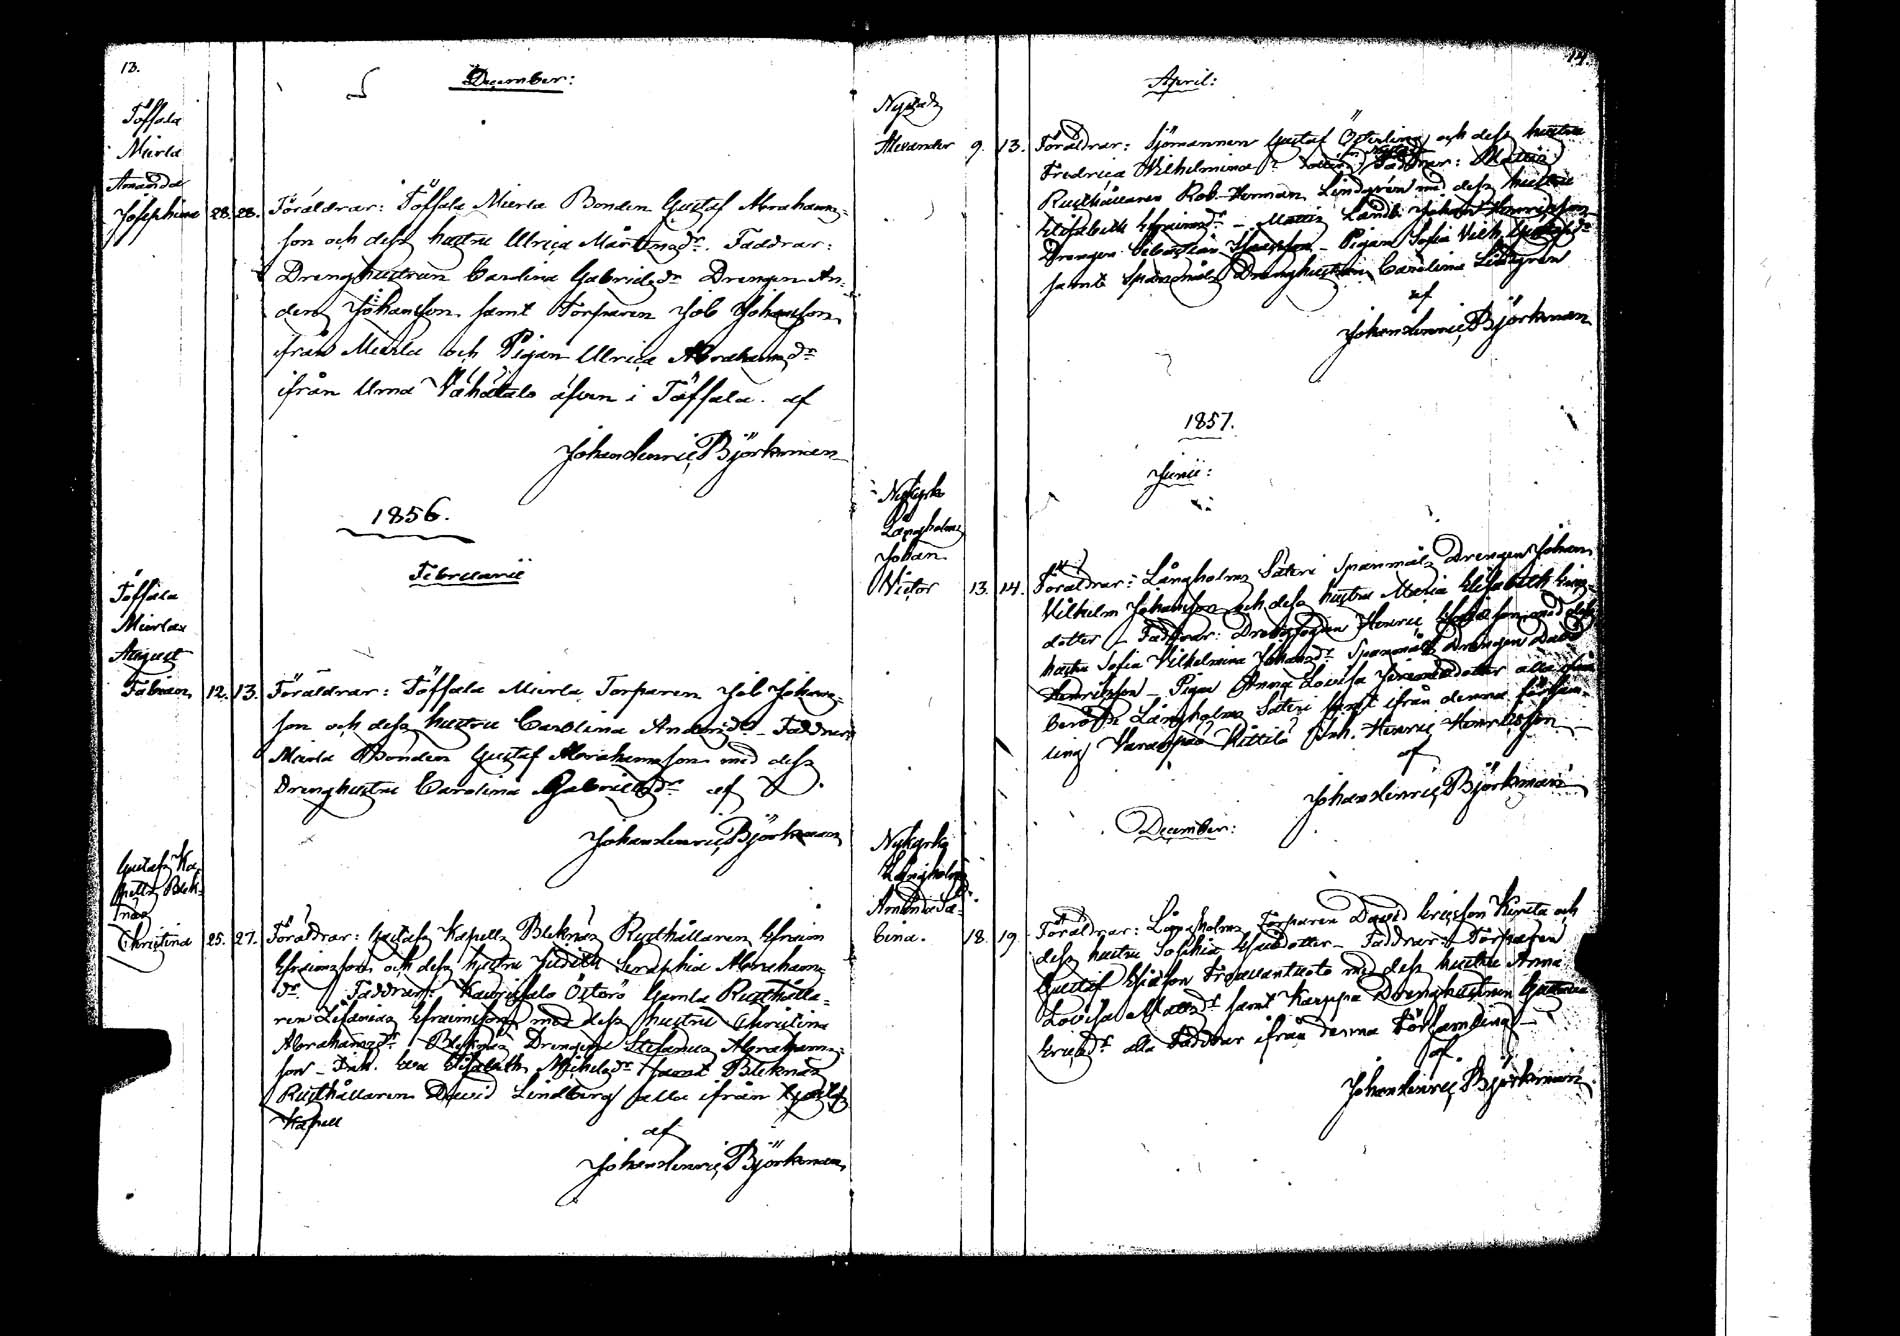 13.
December:
Töffala
Mierla
Amanda
Josephina 28. 28. Föräldrar: Töffala Mierla Bonden Gustaf Abrahams-
son och dess hustru Ulrica Mårtensdr. Faddrar:
Drenghustrun Carolina Gabrielsdr Drengen An-
ders Johansson samt Torparen Job Johansson
från Mierla och Pigan Ulrica Abrahamsdr
ifrån Vähätalo äfven i Töffala. af
Johan Henric Björkman
1856.
Februarii
Töffala
Mierla
August
Fabian 12. 13. Föräldrar: Töffala Mierla Torparen Job Johans-
son och dess hustru Carolina Andersdr - Faddrar:
Mierla Bonden Gustaf Abrahamsson med dess
Drenghustru Carolina Gabrielsdr af
Johan Henric Björkman
Gustafs Ka-
pells Blek-
näs
Christina 25. 27. Föräldrar: Gustafs Kapells Bleknäs Rusthållaren Efraim
Efraimsson och dess hustru Judith Seraphia Abrahams-
dr. Faddrar: Österö Gamla Rusthålla-
ren Efraimsson med dess hustru Christina
Abrahamsdr - Bleknäs Drengen Abrahams-
son - Inh. Eva Elisabeth Michelsdr samt Bleknäs
Rusthållaren David Lindberg alla ifrån Gustafs
Kapell
af
Johan Henric Björkman
14.
April:
Nystads
Alexander 9. 13. Föräldrar: Sjömannen Gustaf Österling och dess hustru
Fredrica Wilhelmina Faddrar:
Rusthållaren Rob. Herman Lindgren med dess hustru
Elisabeth Efraimsdr - Landb. Johan Henricsson
Drengen - Pigan Sofia Vilh.
samt Spanmåls Drenghustrun Carolina Lindgren
af
Johan Henric Björkman
1857.
Junii:
Nykyrko
Långholms
Johan
Victor 13. 14. Föräldrar: Långholms Säteri Spanmåls Drengen Johan
Vilhelm Johansson och dess hustru Maria Elisabeth
dotter - Faddrar: Drengfogden Henric med dess
hustru Sofia Vilhelmina Johansdr Spanmåls Drengen David
Henricsson - Pigan Anna Lovisa Jeremiædotter alla
berörde Långholms Säteri samt ifrån denna försam-
ling Inh. Henric Henricsson
af
Johan Henric Björkman
December:
Nykyrko
Långholms
Amanda Sa-
bina. 18. 19. Föräldrar: Långholms Torparen David Ericsson och
dess hustru Sophia Esaidotter - Faddrar: Torparen
Gustaf med dess hustru Anna
Lovisa Mattsdr samt Drenghustrun
Ericsdr alla Faddrar ifrån denna Församling -
af
Johan Henric Björkman